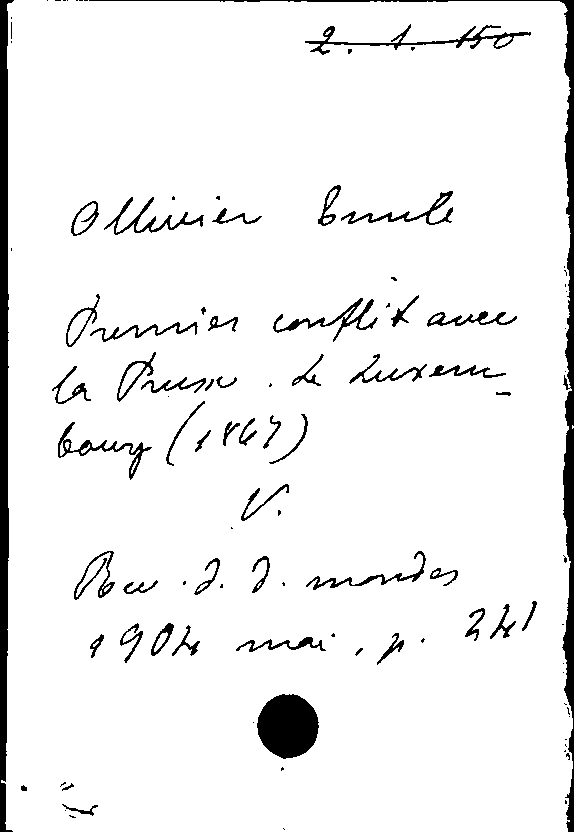 2. 1. 150
Ollivier Emile
Premier conflit avec
la Prusse. Le Luxem-
bourg (1867)
V.
Rev. d. d. mondes
1904 mai, p. 241